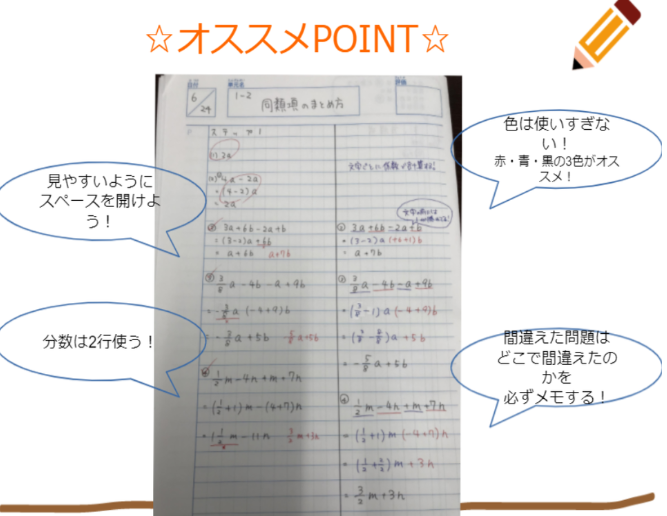 ☆オススメPOINT☆
見やすいように
スペースを開けよ
う！
色は使いすぎな
い！
赤・青・黒の3色がオス
スメ！
分数は2行使う！
間違えた問題は
どこで間違えたの
かを
必ずメモする！
6/24
1-2
同類項のまとめ方
(2) 4a-2a
=(4-2)a
=2a
3a+6b-2a+b
=(3-2)a+6b
=a+6b a+7b
3/8a-4b-a+9b
-3/8a+5b -5/8a+5b
1/2m-4n+m+7n
=(1/2+1)m-(4+7)n
=1 1/2m-11n 3/2m+3n
3a+6b-2a+b
=(3-2)a(+6+1)b
=a+7b
3/8a-4b-a+9b
=(3/8-1)a(-4+9)b
=(3/8-8/8)a+5b
=-5/8a+5b
1/2m-4n+m+7n
=(1/2+1)m(-4+7)n
=(1/2+2/2)m+3n
=3/2m+3n